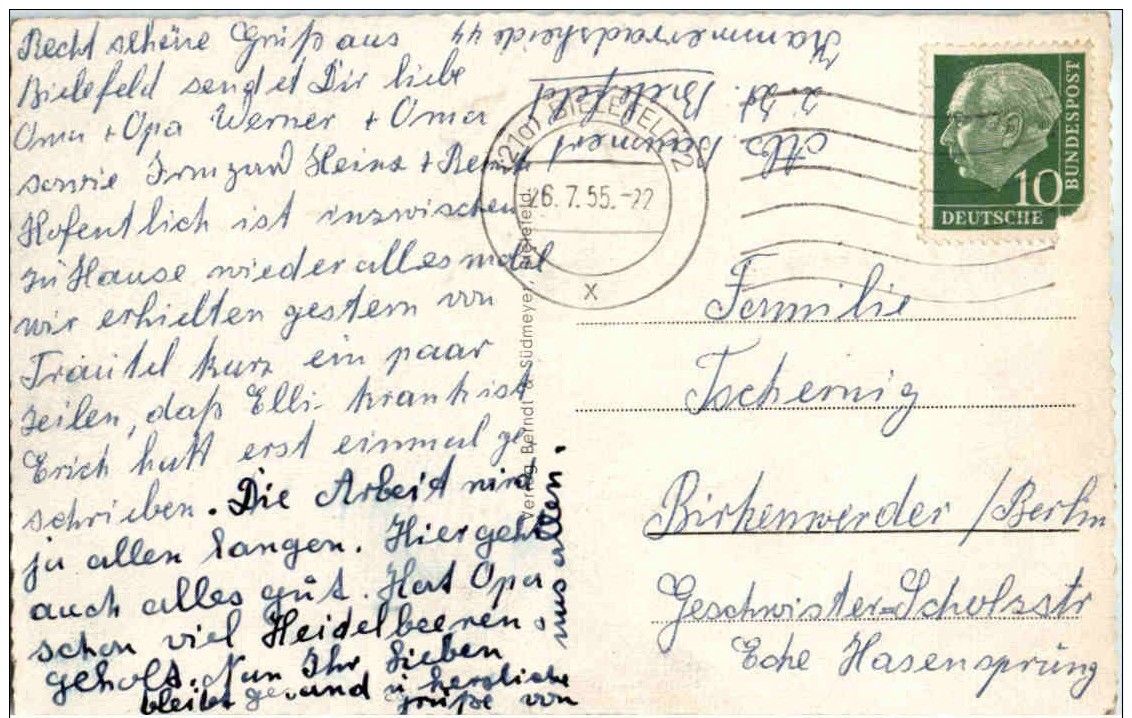 Recht schöne Grüß aus
Bielefeld sendet Dir liebe
Oma + Opa Werner + Oma
sowie Irmgard Heinz + Bernd
Hofentlich ist inzwischen
zu Hause wieder alles
wir erhielten gestern von
Trautel kurz ein paar
zeilen, daß Elli krank ist
Erich hatt erst einmal ge
schrieben. Die Arbeit wird
ja allen langen. Hier geht
auch alles gut. Hat Opa
schon viel Heidelbeeren
geholt. Nun Ihr Lieben
bleibt gesund u herzliche
grüße von
uns allen.
Abs. Baumert
z. Zt. Bielefeld
Hammerradsheide 44
(21a) BIELEFELD 2
26.7.55.-22
x
DEUTSCHE
BUNDESPOST
10
Verlag Berndt & Südmeyer, Bielefeld.
Familie
Tschernig
Birkenwerder /Berlin
Geschwister=Scholzstr
Eche Hasensprüng